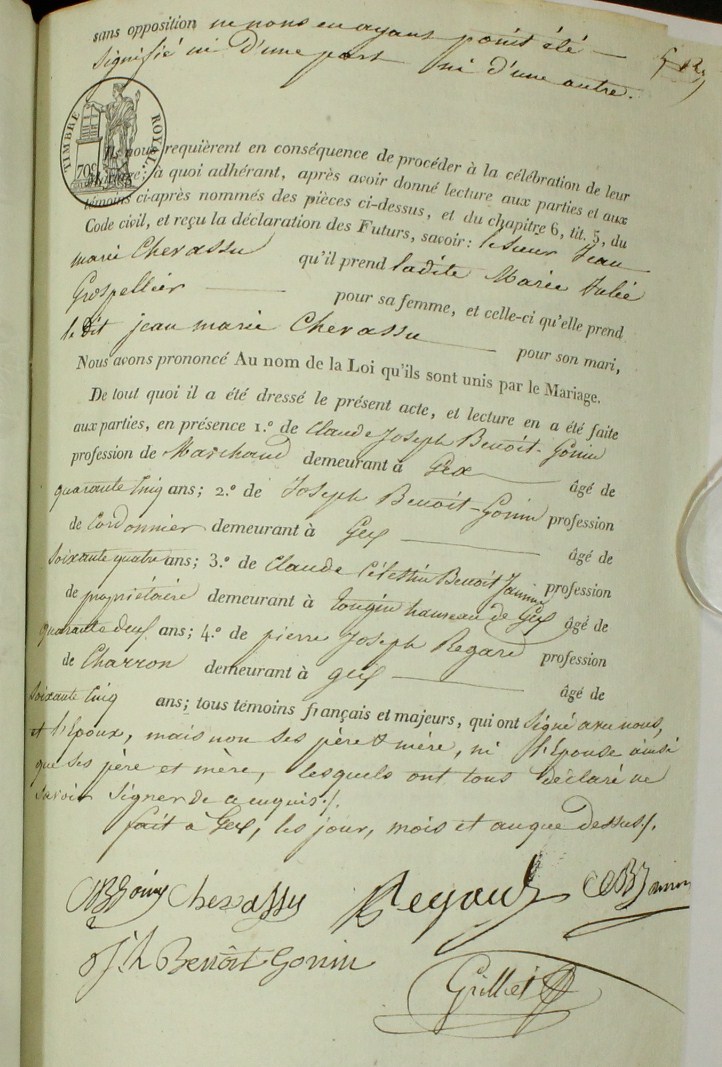 sans opposition ne nous en ayant point été
signifié ni d'une part ni d'une autre.
TIMBRE ROYAL.
70c
Ils nous requièrent en conséquence de procéder à la célébration de leur
Mariage; à quoi adhérant, après avoir donné lecture aux parties et aux
témoins ci-après nommés des pièces ci-dessus, et du chapitre 6, tit. 5, du
Code civil, et reçu la déclaration des Futurs, savoir: le sieur Jean
marie Chevassu qu'il prend ladite Marie Julie
Grospellier pour sa femme, et celle-ci qu'elle prend
le dit jean marie Chevassu pour son mari,
Nous avons prononcé Au nom de la Loi qu'ils sont unis par le Mariage.
De tout quoi il a été dressé le présent acte, et lecture en a été faite
aux parties, en présence 1.º de Claude Joseph Benoit-Gonin
profession de Marchand demeurant à Gex âgé de
quarante cinq ans; 2.º de Joseph Benoit-Gonin profession
de Cordonnier demeurant à Gex âgé de
soixante quatre ans; 3.º de Claude Célestin Benoit Janin profession
de propriétaire demeurant à tougin hameau de Gex âgé de
quarante deux ans; 4.º de pierre Joseph Regard profession
de Charron demeurant à gex âgé de
soixante cinq ans; tous témoins français et majeurs, qui ont signé avec nous,
et l'Epoux, mais non ses père & mère, ni l'Epouse ainsi
que ses père et mère, lesquels ont tous déclaré ne
savoir signer de ce enquis./.
fait à Gex, les jour, mois et an que dessus./.
Chevassu Regard
Jh Benoît Gonin